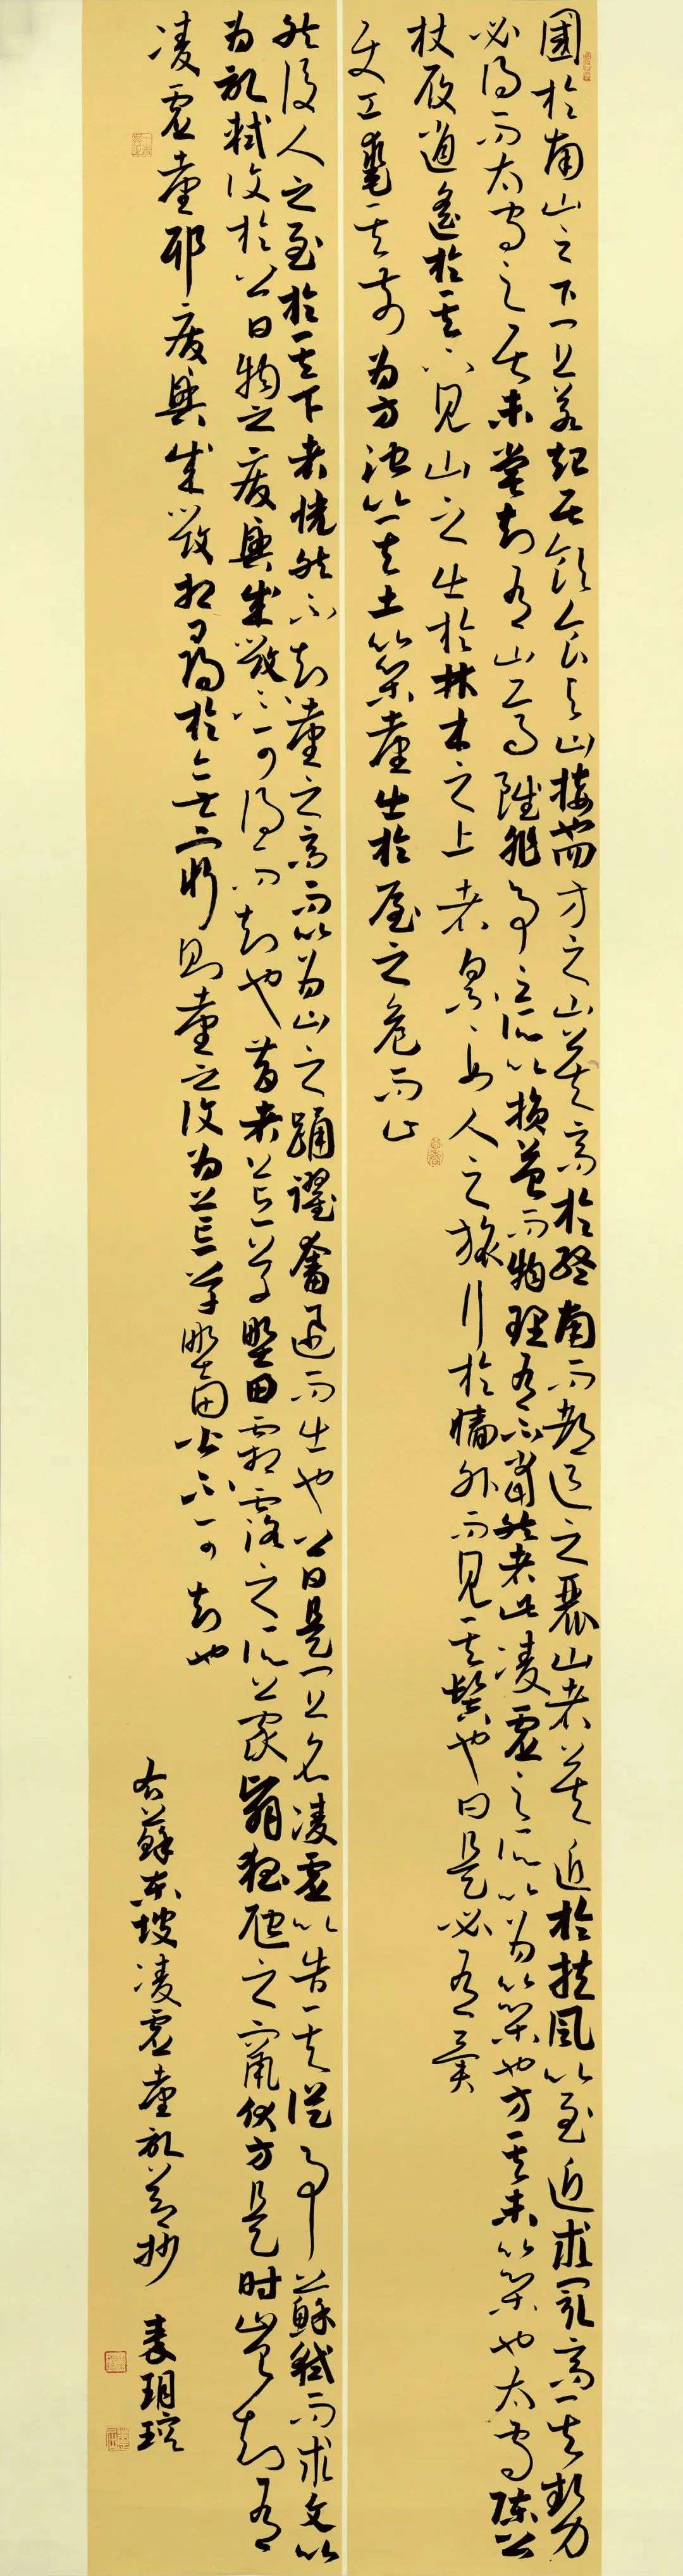 國於南山之下宜若起居飲食與山接也四方之山莫高於終南而都邑之麗山者莫近於扶風以至近求最高其勢
必得而太守之居未嘗知有山焉雖非事之所以損益而物理有不當然者此凌虛之所以為築也方其未築也太守陳公
杖履逍遙於其下見山之出於林木之上者累累如人之旅行於墻外而見其髻也曰是必有異
使工鑿其前為方池以其土築臺出於屋之危而止
然後人之至於其下者恍然不知臺之高而以為山之踊躍奮迅而出也公曰是宜名凌虛以告其從事蘇軾而求文以
為記軾復於公曰物之廢興成毀不可得而知也昔者荒草野田霜露之所蒙翳狐虺之竄伏方是时豈知有
凌虛臺耶廢興成毀相尋於無窮則臺之復為荒草野田皆不可知也
右蘇東坡凌虛臺記節抄 麦玥